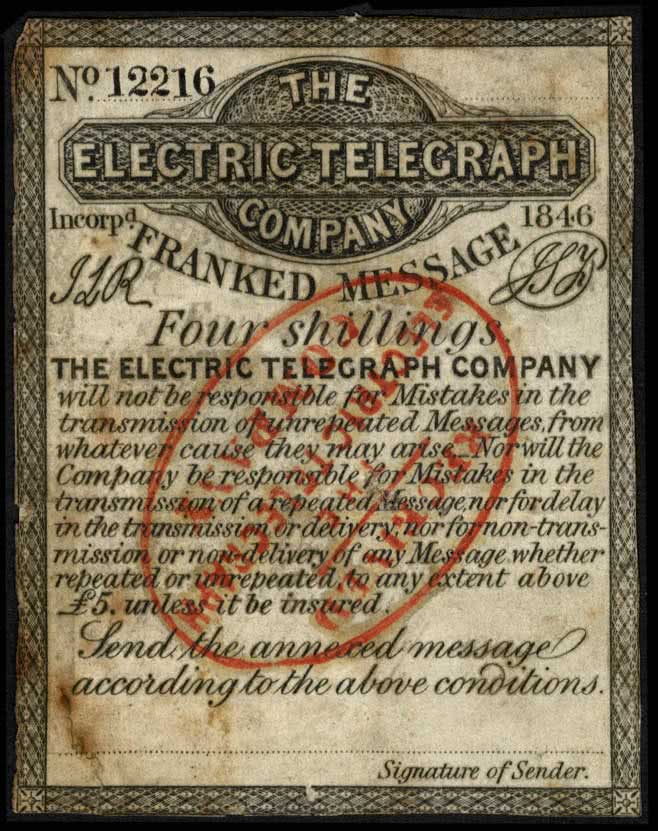 No. 12216
THE
ELECTRIC TELEGRAPH
COMPANY
Incorpd. 1846
FRANKED MESSAGE
JLR
Four shillings.
THE ELECTRIC TELEGRAPH COMPANY
will not be responsible for Mistakes in the
transmission of unrepeated Messages, from
whatever cause they may arise._Nor will the
Company be responsible for Mistakes in the
transmission of a repeated Message, nor for delay
in the transmission or delivery, nor for non-trans-
mission or non-delivery of any Message whether
repeated or unrepeated, to any extent above
£5. unless it be insured.
Send the annexed message
according to the above conditions.
Signature of Sender.